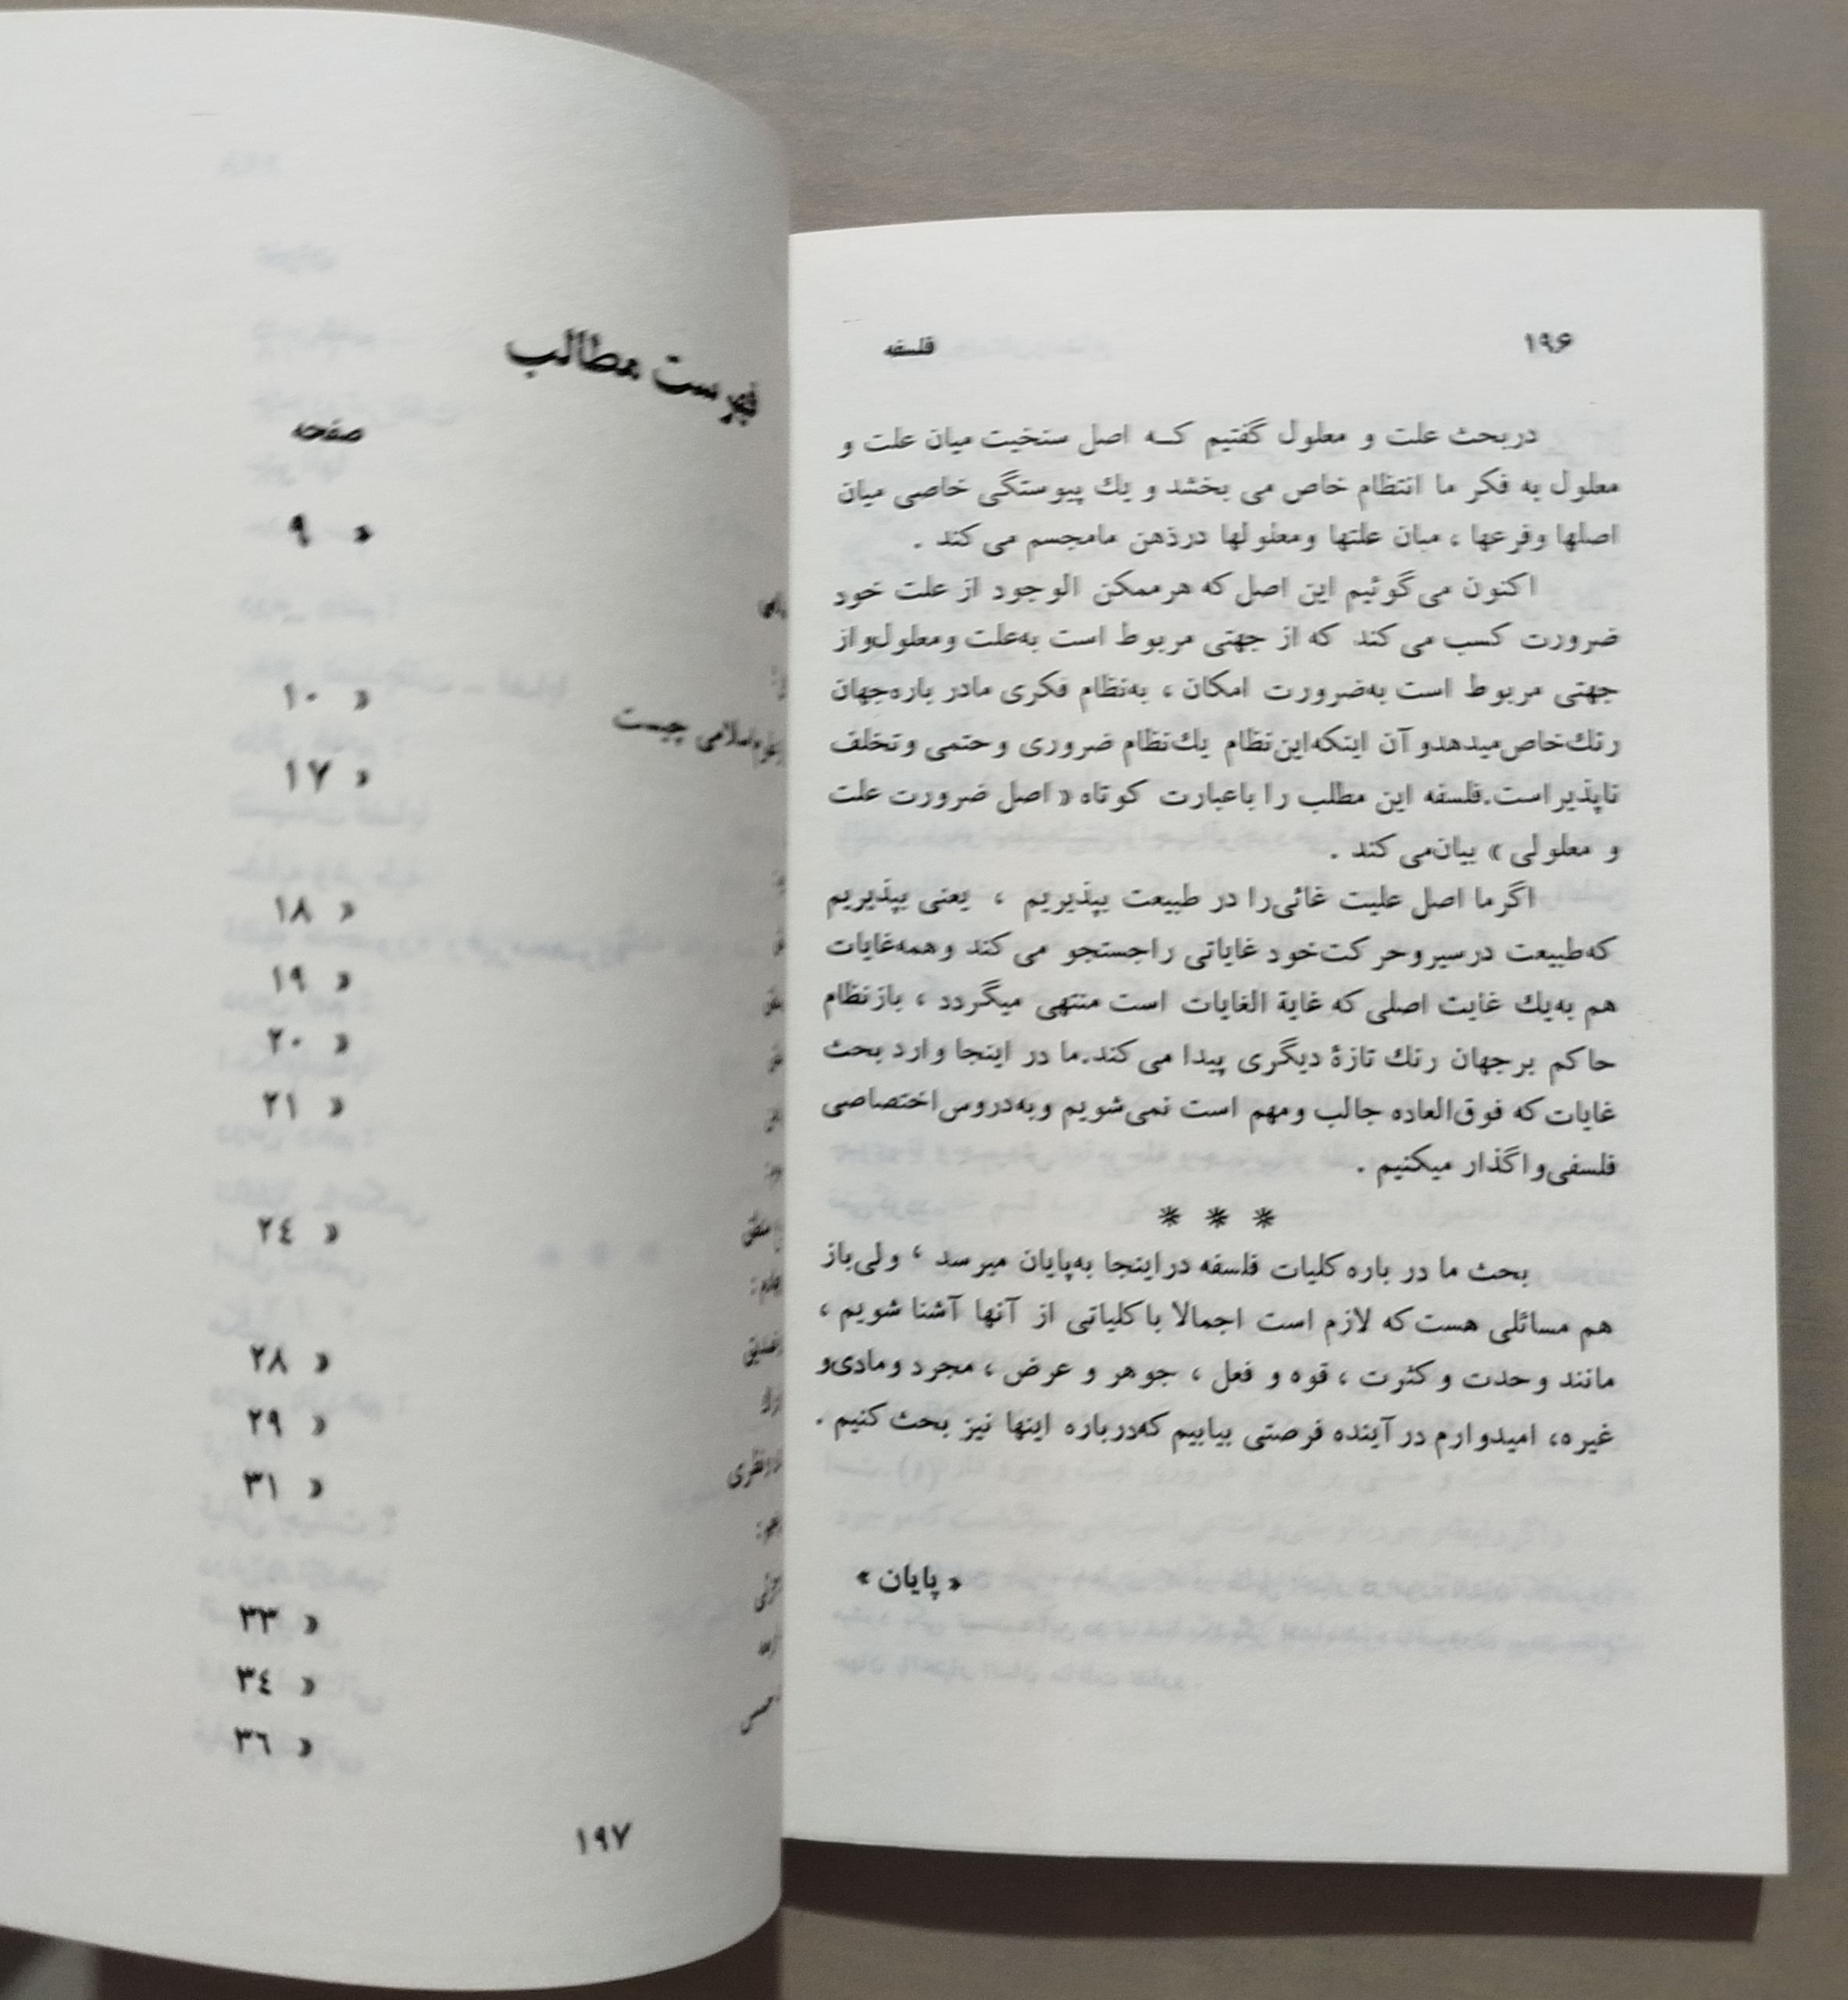 ۱۹۶
فلسفه
دربحث علت و معلول گفتیم کــه اصل سنخیت میان علت و
معلول به فکر ما انتظام خاص می بخشد و یك پیوستگی خاصی میان
اصلها وفرعها ، میان علتها ومعلولها درذهن مامجسم می کند .
اکنون می گوئیم این اصل که هرممکن الوجود از علت خود
ضرورت کسب می کند که از جهتی مربوط است به‌علت ومعلول‌واز
جهتی مربوط است به‌ضرورت امکان ، به‌نظام فکری مادر باره‌جهان
رنك‌خاص‌میدهدو آن اینکه‌این‌نظام یك‌نظام ضروری وحتمی وتخلف
ناپذیر است.فلسفه این مطلب را باعبارت کوتاه « اصل ضرورت علت
و معلولی » بیان‌می کند .
اگرما اصل علیت غائی‌را در طبیعت بپذیریم ، یعنی بپذیریم
که‌طبیعت درسیروحرکت‌خود غایاتی راجستجو می کند وهمه‌غایات
هم به‌یك غایت اصلی که غایة الغایات است منتهی میگردد ، بازنظام
حاکم برجهان رنك تازهٔ دیگری پیدا می کند.ما در اینجا وارد بحث
غایات که فوق‌العاده جالب ومهم است نمی‌شویم وبه‌دروس‌اختصاصی
فلسفی‌واگذار میکنیم .
* * *
بحث ما در باره کلیات فلسفه دراینجا به‌پایان میرسد ، ولی‌باز
هم مسائلی هست‌که لازم است اجمالا باکلیاتی از آنها آشنا شویم ،
مانند وحدت و کثرت ، قوه و فعل ، جوهر و عرض ، مجرد ومادی‌و
غیره، امیدوارم در آینده فرصتی بیابیم که‌درباره اینها نیز بحث کنیم .
« پایان »
فهرست مطالب
صفحه
« ۹
« ۱۰
چیست
« ۱۷
« ۱۸
« ۱۹
« ۲۰
« ۲۱
« ۲٤
« ۲۸
« ۲۹
« ۳۱
« ۳۳
« ۳٤
« ۳٦
۱۹۷